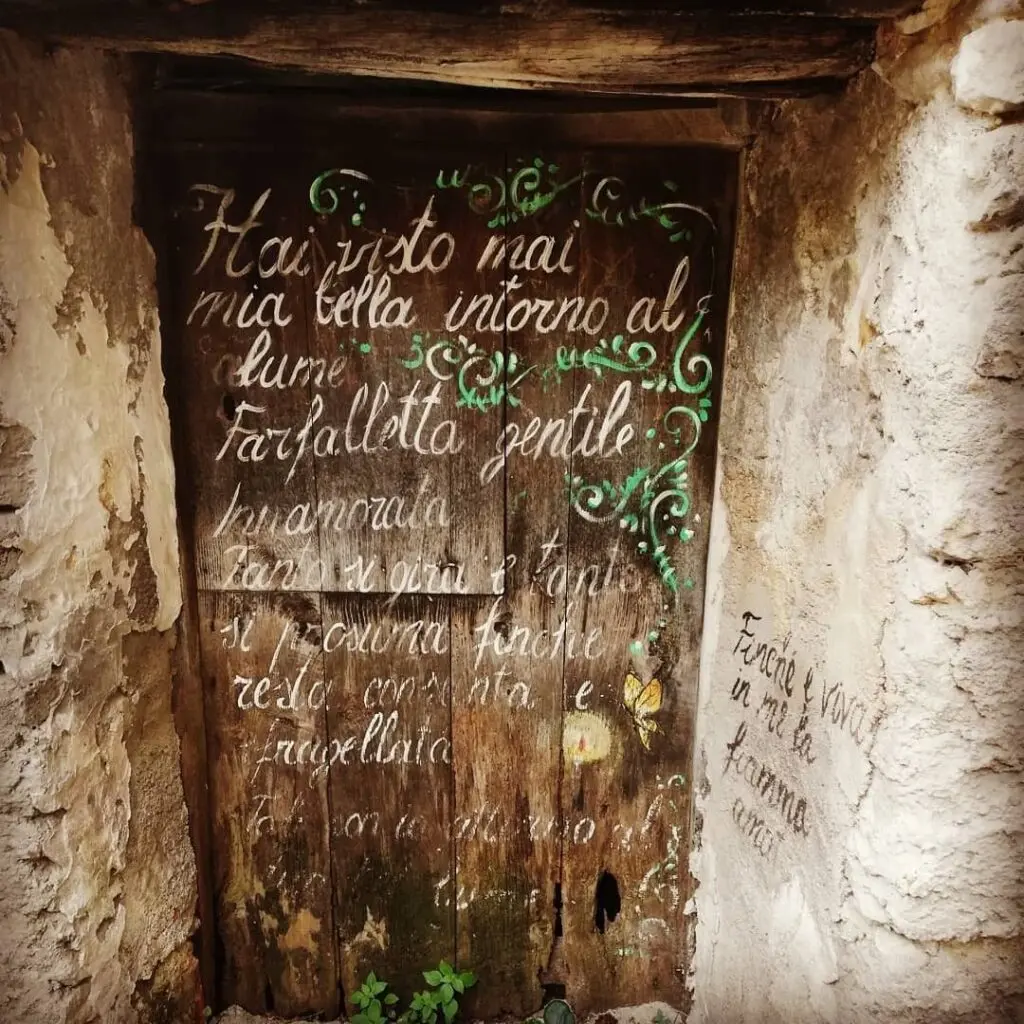 Hai visto mai
mia bella intorno al
lume
Farfalletta gentile
Innamorata
Tanto si gira e tanto
si prosuna finche
resta e
fragellata
al
lume
Finche è viva
in me la
fiamma
amo